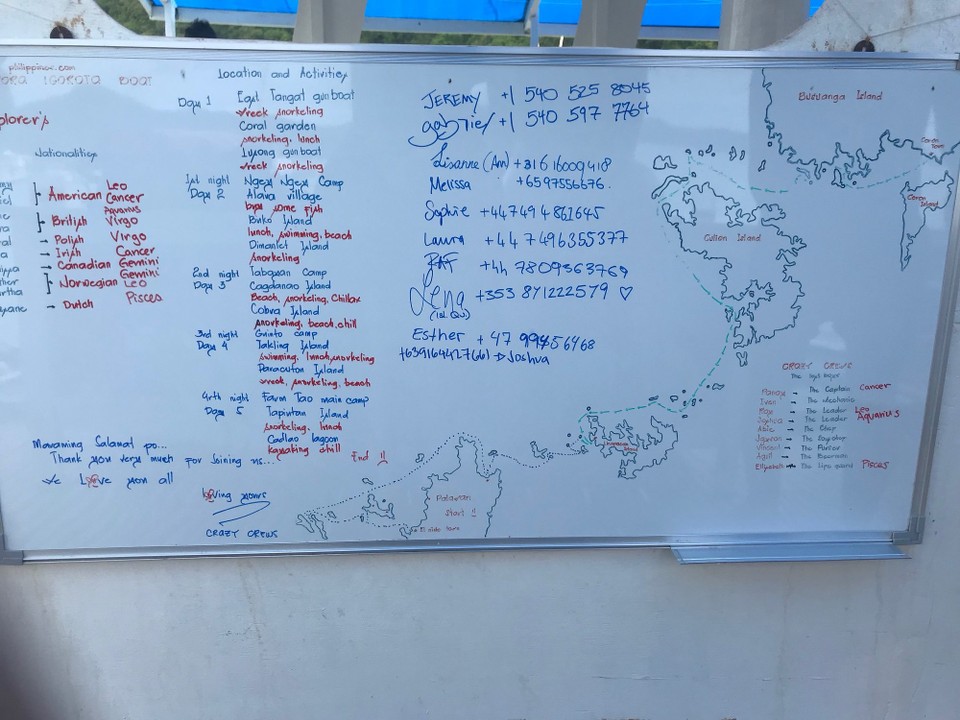 philippines.com
ORA IGOROTA BOAT
plorer's
Nationalities
American Leo
Cancer
British Aquarius
Virgo
Polish Virgo
Irish Cancer
Canadian Gemini
Norwegian Gemini
Leo
Dutch Pisces
Location and Activities
Day 1 East Tangat gunboat
wreck snorkeling
Coral garden
snorkeling, lunch
Lusong gunboat
wreck snorkeling
1st night Ngey Ngey Camp
Day 2 Alava village
buys some fish
Binko Island
lunch, swimming, beach
Dimanlet Island
snorkeling
2nd night Tabguan Camp
Day 3 Cagdanao Island
Beach, snorkeling, Chillax
Cobra Island
snorkeling, beach, chill
3rd night Guinto camp
Day 4 Takling Island
swimming, lunch, snorkeling
Daracuton Island
wreck, snorkeling, beach
4rth night Farm Tao main camp
Day 5 Tapiutan Island
snorkeling, lunch
Cadlao lagoon
kayaking chill
End !!
Mawaming Salamat po...
Thank you very much for joining us...
We Love you all
loving yours
CRAZY CREWS
JEREMY +1 540 525 8045
gabriel +1 540 597 7764
Lisanne (Ann) +31616009418
Melissa +6597556676.
Sophie +447494861645
Laura +447496355377
RAF +44 7809363769
Lena +353 871222579 ♡
Esther +47 99456468
+639164427661 → Joshua
Busuanga Island
Coron Town
Coron Island
Culion Island
Linapacan Island
Palawan
Start !!
El nido town
CRAZY CREWS
The last lager
The Captain Cancer
Ivan → The Mechanic
The Leader Leo
Joshua → The Leader Aquarius
The Chep
The Soychep
Vincent → The Porter
The Boatman
Elizabeth → The Lipe guard Pisces